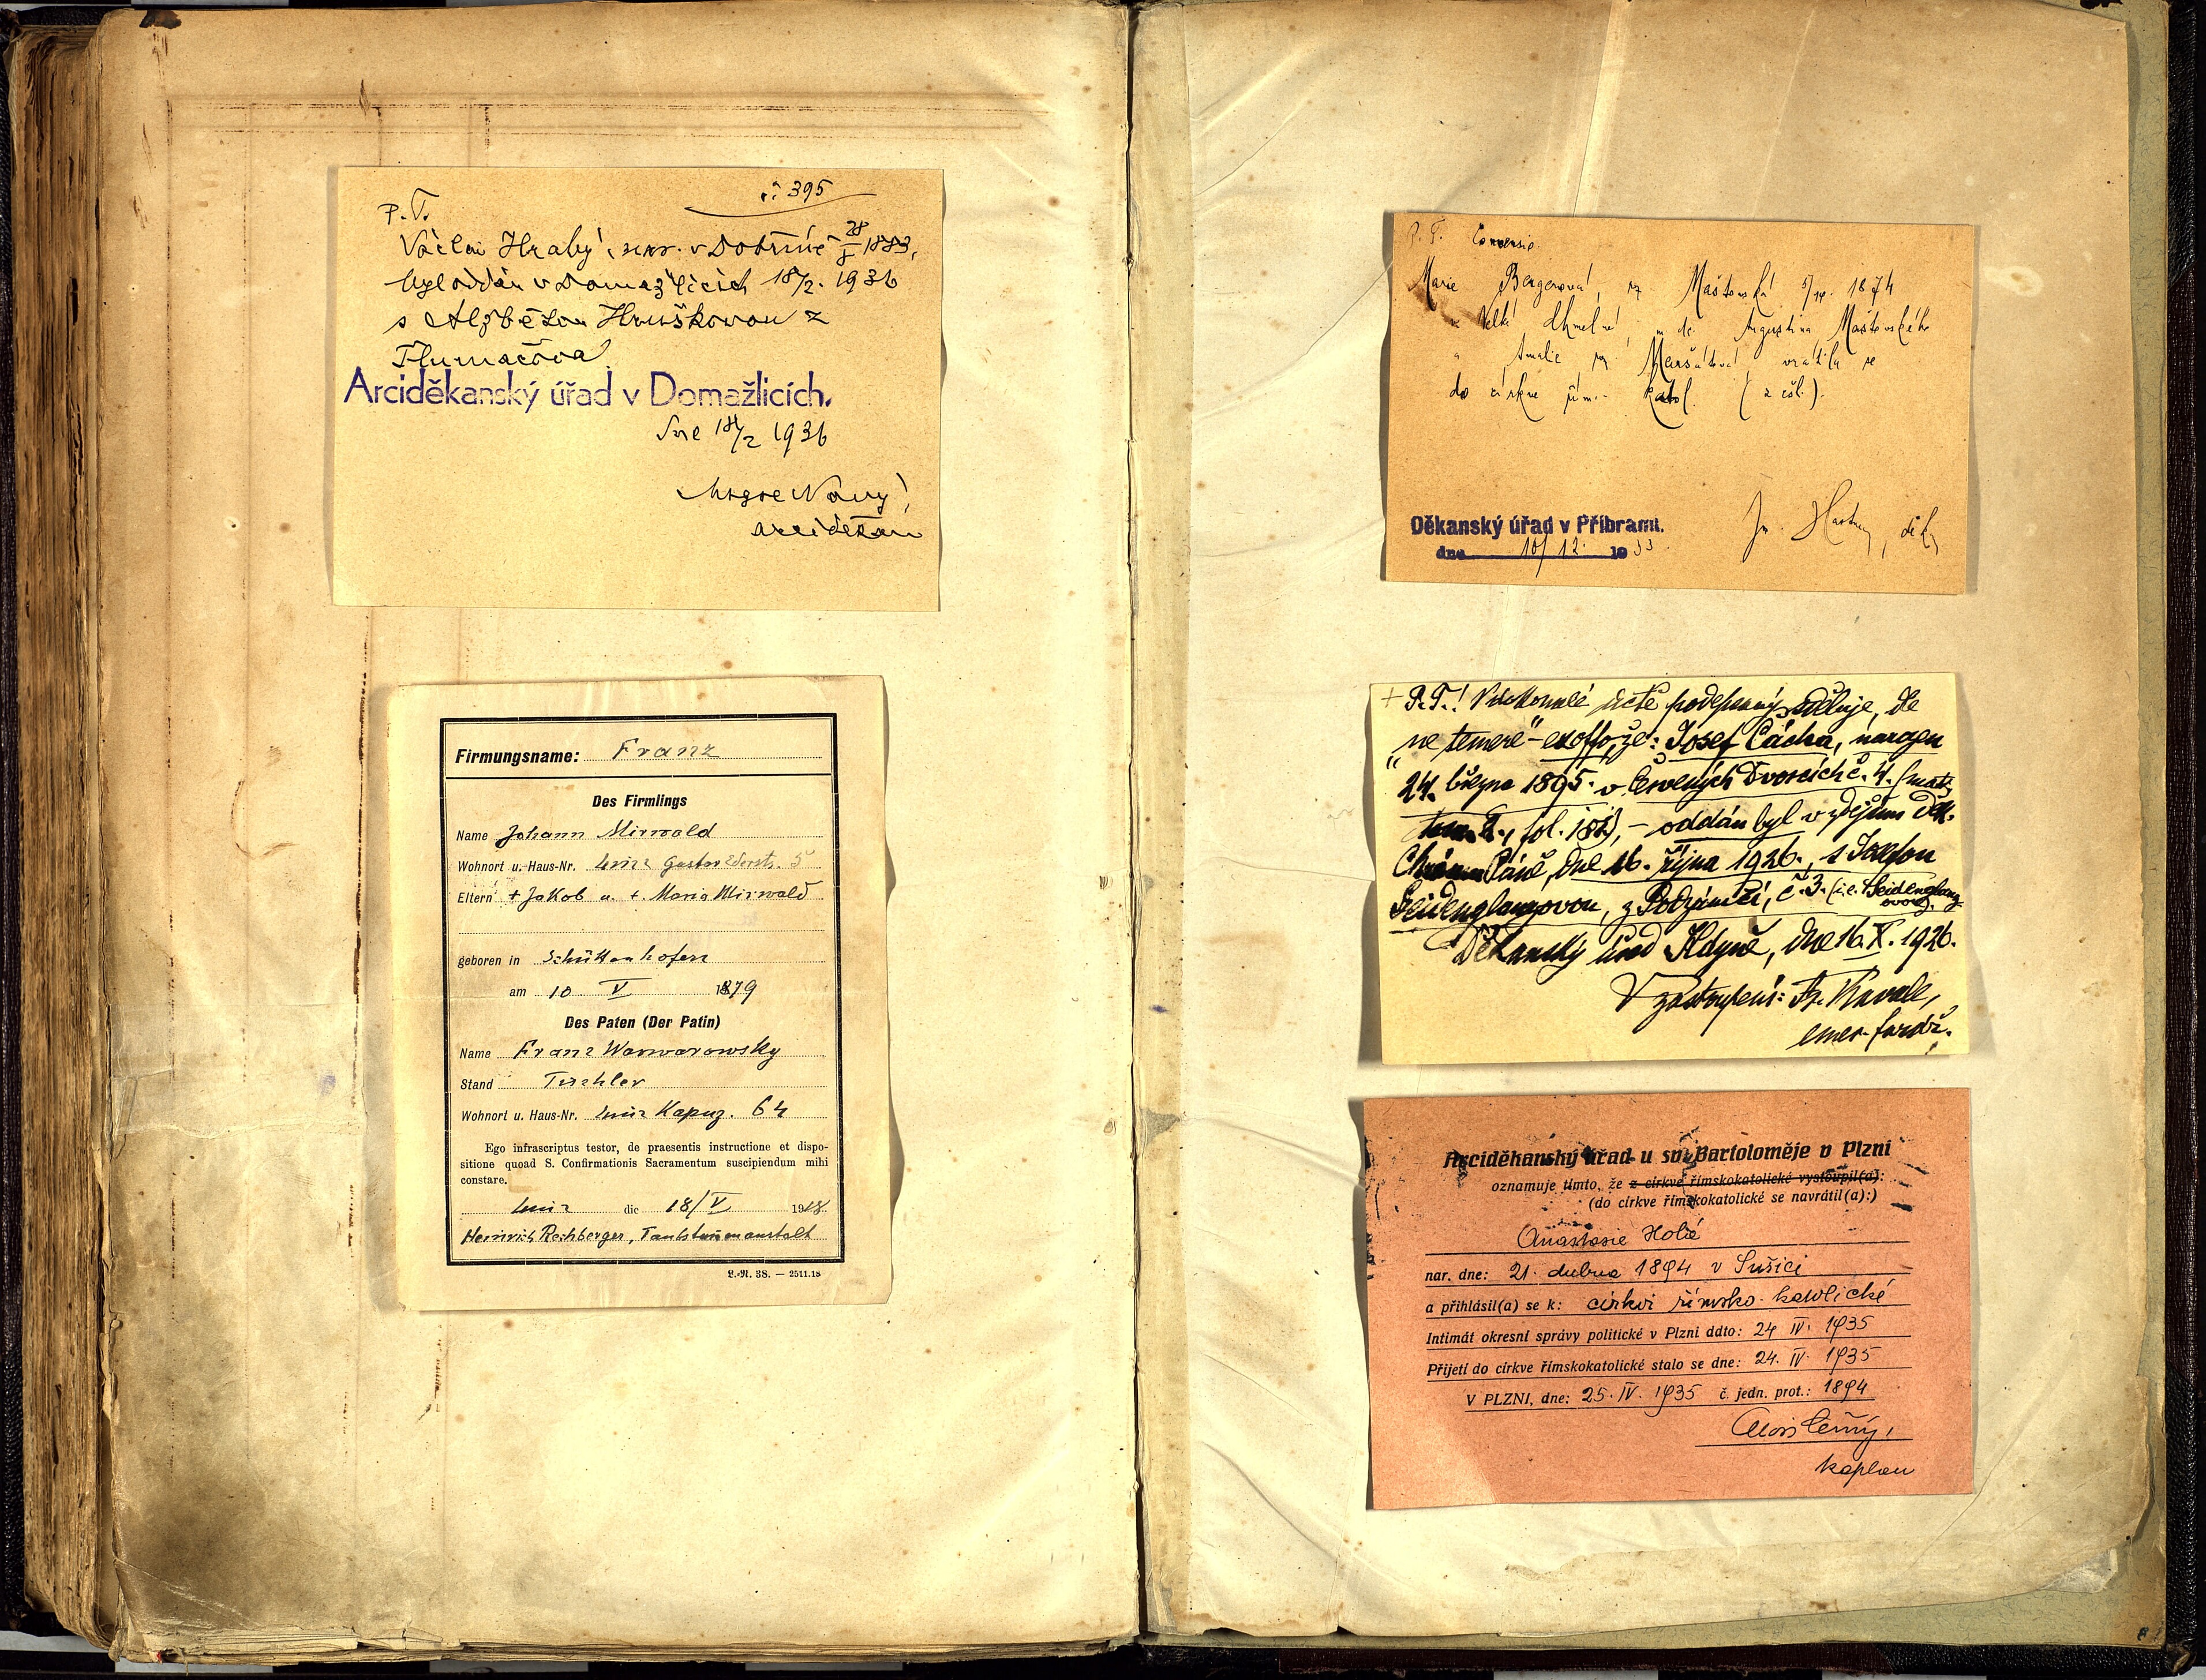 č 395
P. T.
Václav Hrabý, nar. v Dobříně 28/8 1883,
byl oddán v Domažlicích 18/2. 1936
s Alžbětou Hruškovou z
Tlumačova.
Arciděkanský úřad v Domažlicích.
dne 18/2 1936
Msgre Nový
arciděkan
Firmungsname: Franz
Des Firmlings
Name Johann Mirwald
Wohnort u. Haus-Nr. Linz 5
Eltern + Jakob u. + Maria Mirwald
geboren in Schüttenhofen
am 10 V 1879
Des Paten (Der Patin)
Name Franz Warwarowsky
Stand Tischler
Wohnort u. Haus-Nr. Linz Kapuz. 64
Ego infrascriptus testor, de praesentis instructione et dispo-
sitione quoad S. Confirmationis Sacramentum suscipiendum mihi
constare.
Linz die 18/V 1918.
Heinrich Rechberger, Taubstummenanstalt
L.-N. 38. — 2511.18
P. T. Conversio.
Marie Bergerová, roz. Maštovská 5/IV. 1874
z Velké Chmelné, m dc. Augustina Maštovského
a Amalie roz Maršátové, vrátila se
do církve řím.- katol. (z čsl.).
Děkanský úřad v Příbrami.
dne 10/12. 1933
Hartm, děk
+ P. T.! V dokonalé úctě podepsaný sděluje, dle
"ne temere" - exoffo, že: Josef Cácha, narozen
24. března 1895. v Červených Dvorcích č. 4. (matr.
fol. 182), - oddán byl v zdejším děk.
Chrámu Páně, dne 16. října 1926., s Josefou
Seidenglanzovou, z Podzámčí, č. 3. (i.e. Seidenglanz-
ovou).
Děkanský úřad Kdyně, dne 16. X. 1926.
V zastoupení: Fr. Kavale,
emer. farář.
Arciděkanský úřad u sv. Bartoloměje v Plzni
oznamuje tímto, že z církve římskokatolické vystoupil(a):
(do církve římskokatolické se navrátil(a):)
Anastasie Holá
nar. dne: 21. dubna 1894 v Sušici
a přihlásil(a) se k: církvi římsko-katolické
Intimát okresní správy politické v Plzni ddto: 24 IV. 1935
Přijetí do církve římskokatolické stalo se dne: 24. IV 1935
V PLZNI, dne: 25. IV. 1935 č. jedn. prot.: 1894
Alois Černý,
kaplan